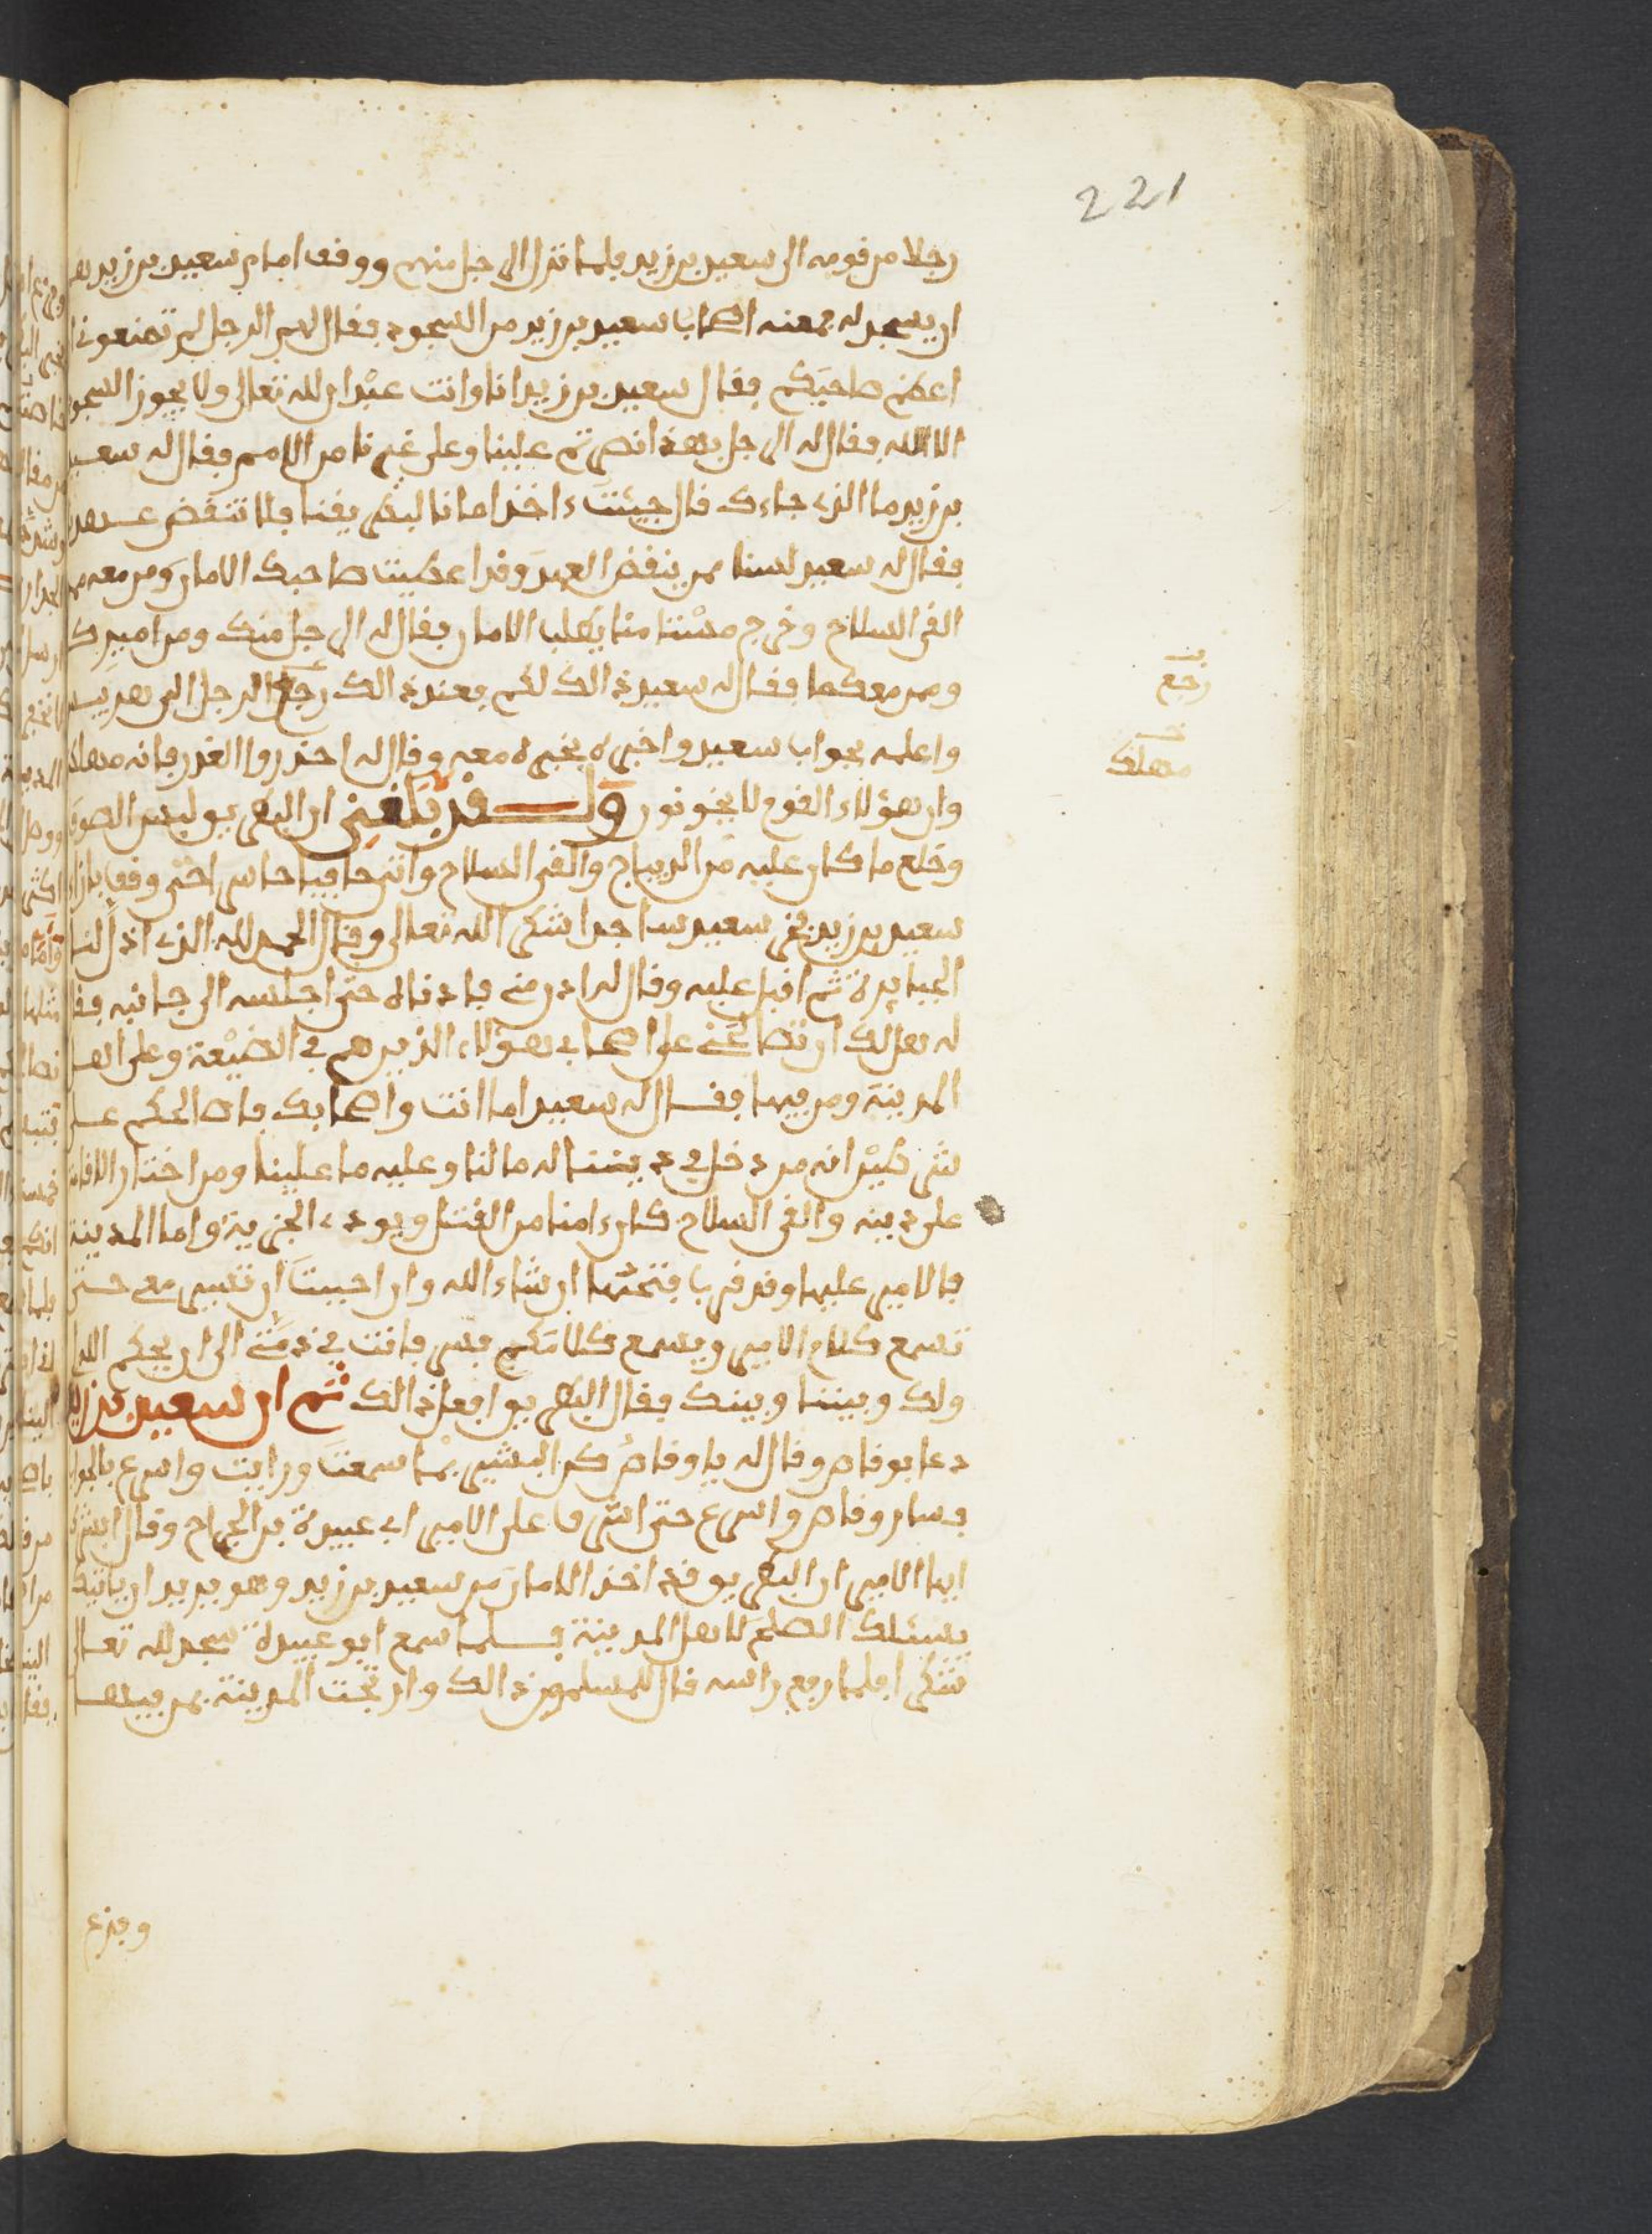 221
رجلا من قومه الى سعيد بن زيد فلما نزل الرجل منهم ووقف امام سعيد بن زيد هم
ان يسجد له فمنعه اصحاب سعيد بن زيد من السجود فقال لهم الرجل لم تمنعوني ان
اعظم صاحبكم فقال سعيد بن زيد انا وانت عبدان لله تعالى ولا يجوز السجود
الا لله فقال له الرجل بهذا نصرتم علينا وعلى غيرنا من الامم فقال له سعيد
بن زيد ما الذي جاءك قال جيئت ءاخذ امانا لبطريقنا فلا تنقض عهده
فقال له سعيد لسنا ممن ينقض العهد وقد اعطيت صاحبك الامان ومن معه ممن
القى السلاح وخرج مستامنا يطلب الامان فقال له الرجل منك ومن اميرك
وممن معكما فقال له سعيد ذالك لكم فعند ذالك رجع الرجل الى هربيس
رجع
واعلمه بجواب سعيد واخبره بخبره معه وقال له احذروا الغدر فانه مهلك
مهلك
وان هؤلاء القوم لا يخونون ولقد بلغني ان البطريق لبس الصوف
وخلع ما كان عليه من الديباج والقى السلاح واتى حافيا حاسرا حتى وقف بازاء
سعيد بن زيد فخر سعيد ساجدا شكرا لله تعالى وقال الحمد لله الذي اذل لنا
الجبابرة ثم اقبل عليه وقال له ادن مني فادناه حتى اجلسه الى جانبه فقال
له هل لك ان تصالحني على اصحابي هؤلاء الذين هم في الضيعة وعلى اهل
المدينة ومن فيها فقال له سعيد اما انت واصحابك فان الحكم على
شرطين انه من دخل في ديننا له ما لنا وعليه ما علينا ومن اختار الاقامة
على دينه والقى السلاح كان ءامنا من القتل ويودي الجزية واما المدينة
فالامير عليها وقد قرب فتحها ان شاء الله وان احببت ان تسير معي حتى
تسمع كلام الامير ويسمع كلامكم فسر فانت في ذمتي الى ان يحكم الله
ولك وبيننا وبينك فقال البطريق افعل ذالك ثم ان سعيد بن زيد
دعا بوقاص وقال له يا وقاص كن البشير بما سمعت ورايت واسرع بالجواب
فسار وقاص واسرع حتى اشرف على الامير ابي عبيدة بن الجراح وقال ابشرك
ايها الامير ان البطريق قد اخذ الامان من سعيد بن زيد وهو يريد ان ياتيك
يسئلك الصلح لاهل المدينة فلما سمع ابو عبيدة سجد لله تعالى
شكرا فلما رفع راسه قال للمسلمين ذالك وارتجت المدينة بمن فيها
وفزع